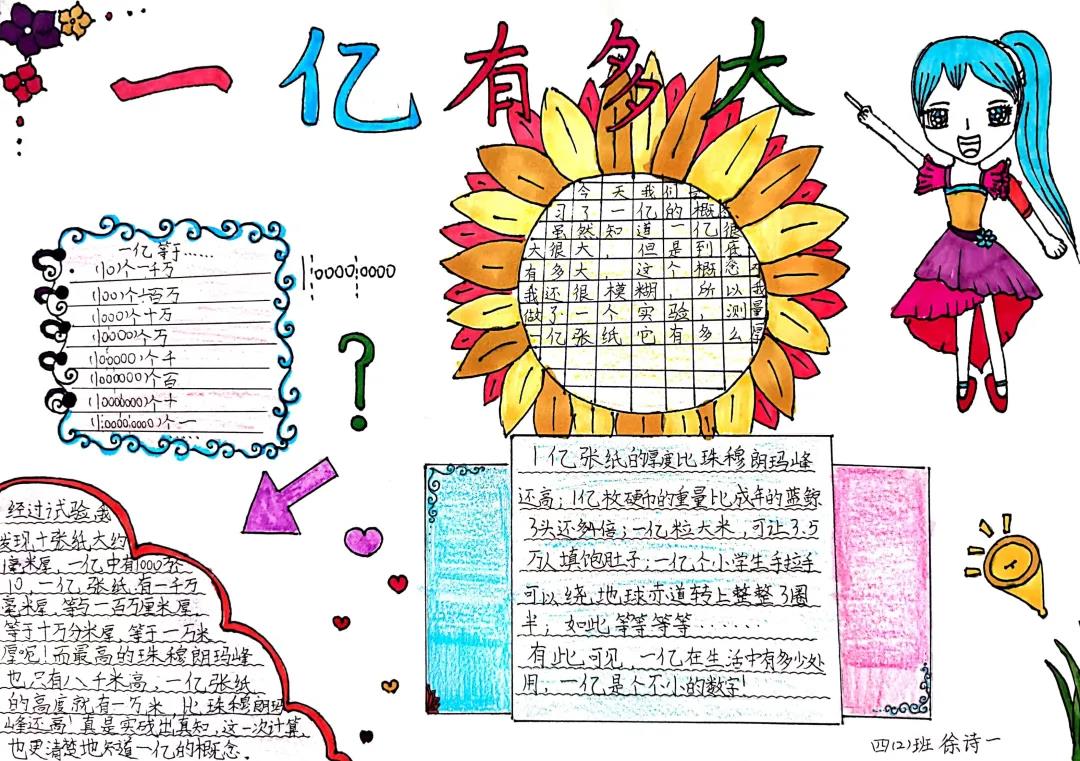 一亿有多大
一亿等于……
(10)个一千万
(100)个一百万
(1000)个十万
(10000)个万
(100000)个千
(1000000)个百
(10000000)个十
(100000000)个一
……
1|0000|0000
?
今天我们
习了一亿的概
虽然知道一亿很
大很大,但是到底
有多大,这个概念
我还很模糊,所以我
做了一个实验,测量
亿张纸它有多么厚
1亿张纸的厚度比珠穆朗玛峰
还高;1亿枚硬币的重量比成年的蓝鲸
3头还多倍;一亿粒大米,可让3.5
万人填饱肚子;一亿个小学生手拉手
可以绕地球赤道转上整整3圈
半;如此等等等等……
有此可见,一亿在生活中有多少处
用,一亿是个不小的数字!
经过试验我
发现十张纸大约
1毫米厚,一亿中有1000万
10,一亿张纸有一千万
毫米厚,等与一百万厘米厚
等于十万分米厚,等于一万米
厚呢!而最高的珠穆朗玛峰
也只有八千米高,一亿张纸
的高度就有一万米,比珠穆朗玛
峰还高!真是实践出真知,这一次计算
也更清楚地知道一亿的概念.
四(2)班 徐诗一